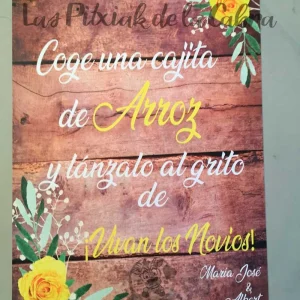 Las Pitxiak de la Cabra
Coge una cajita
de Arroz
y lánzalo al grito
de
¡Vivan los Novios!
María José
&
Albert